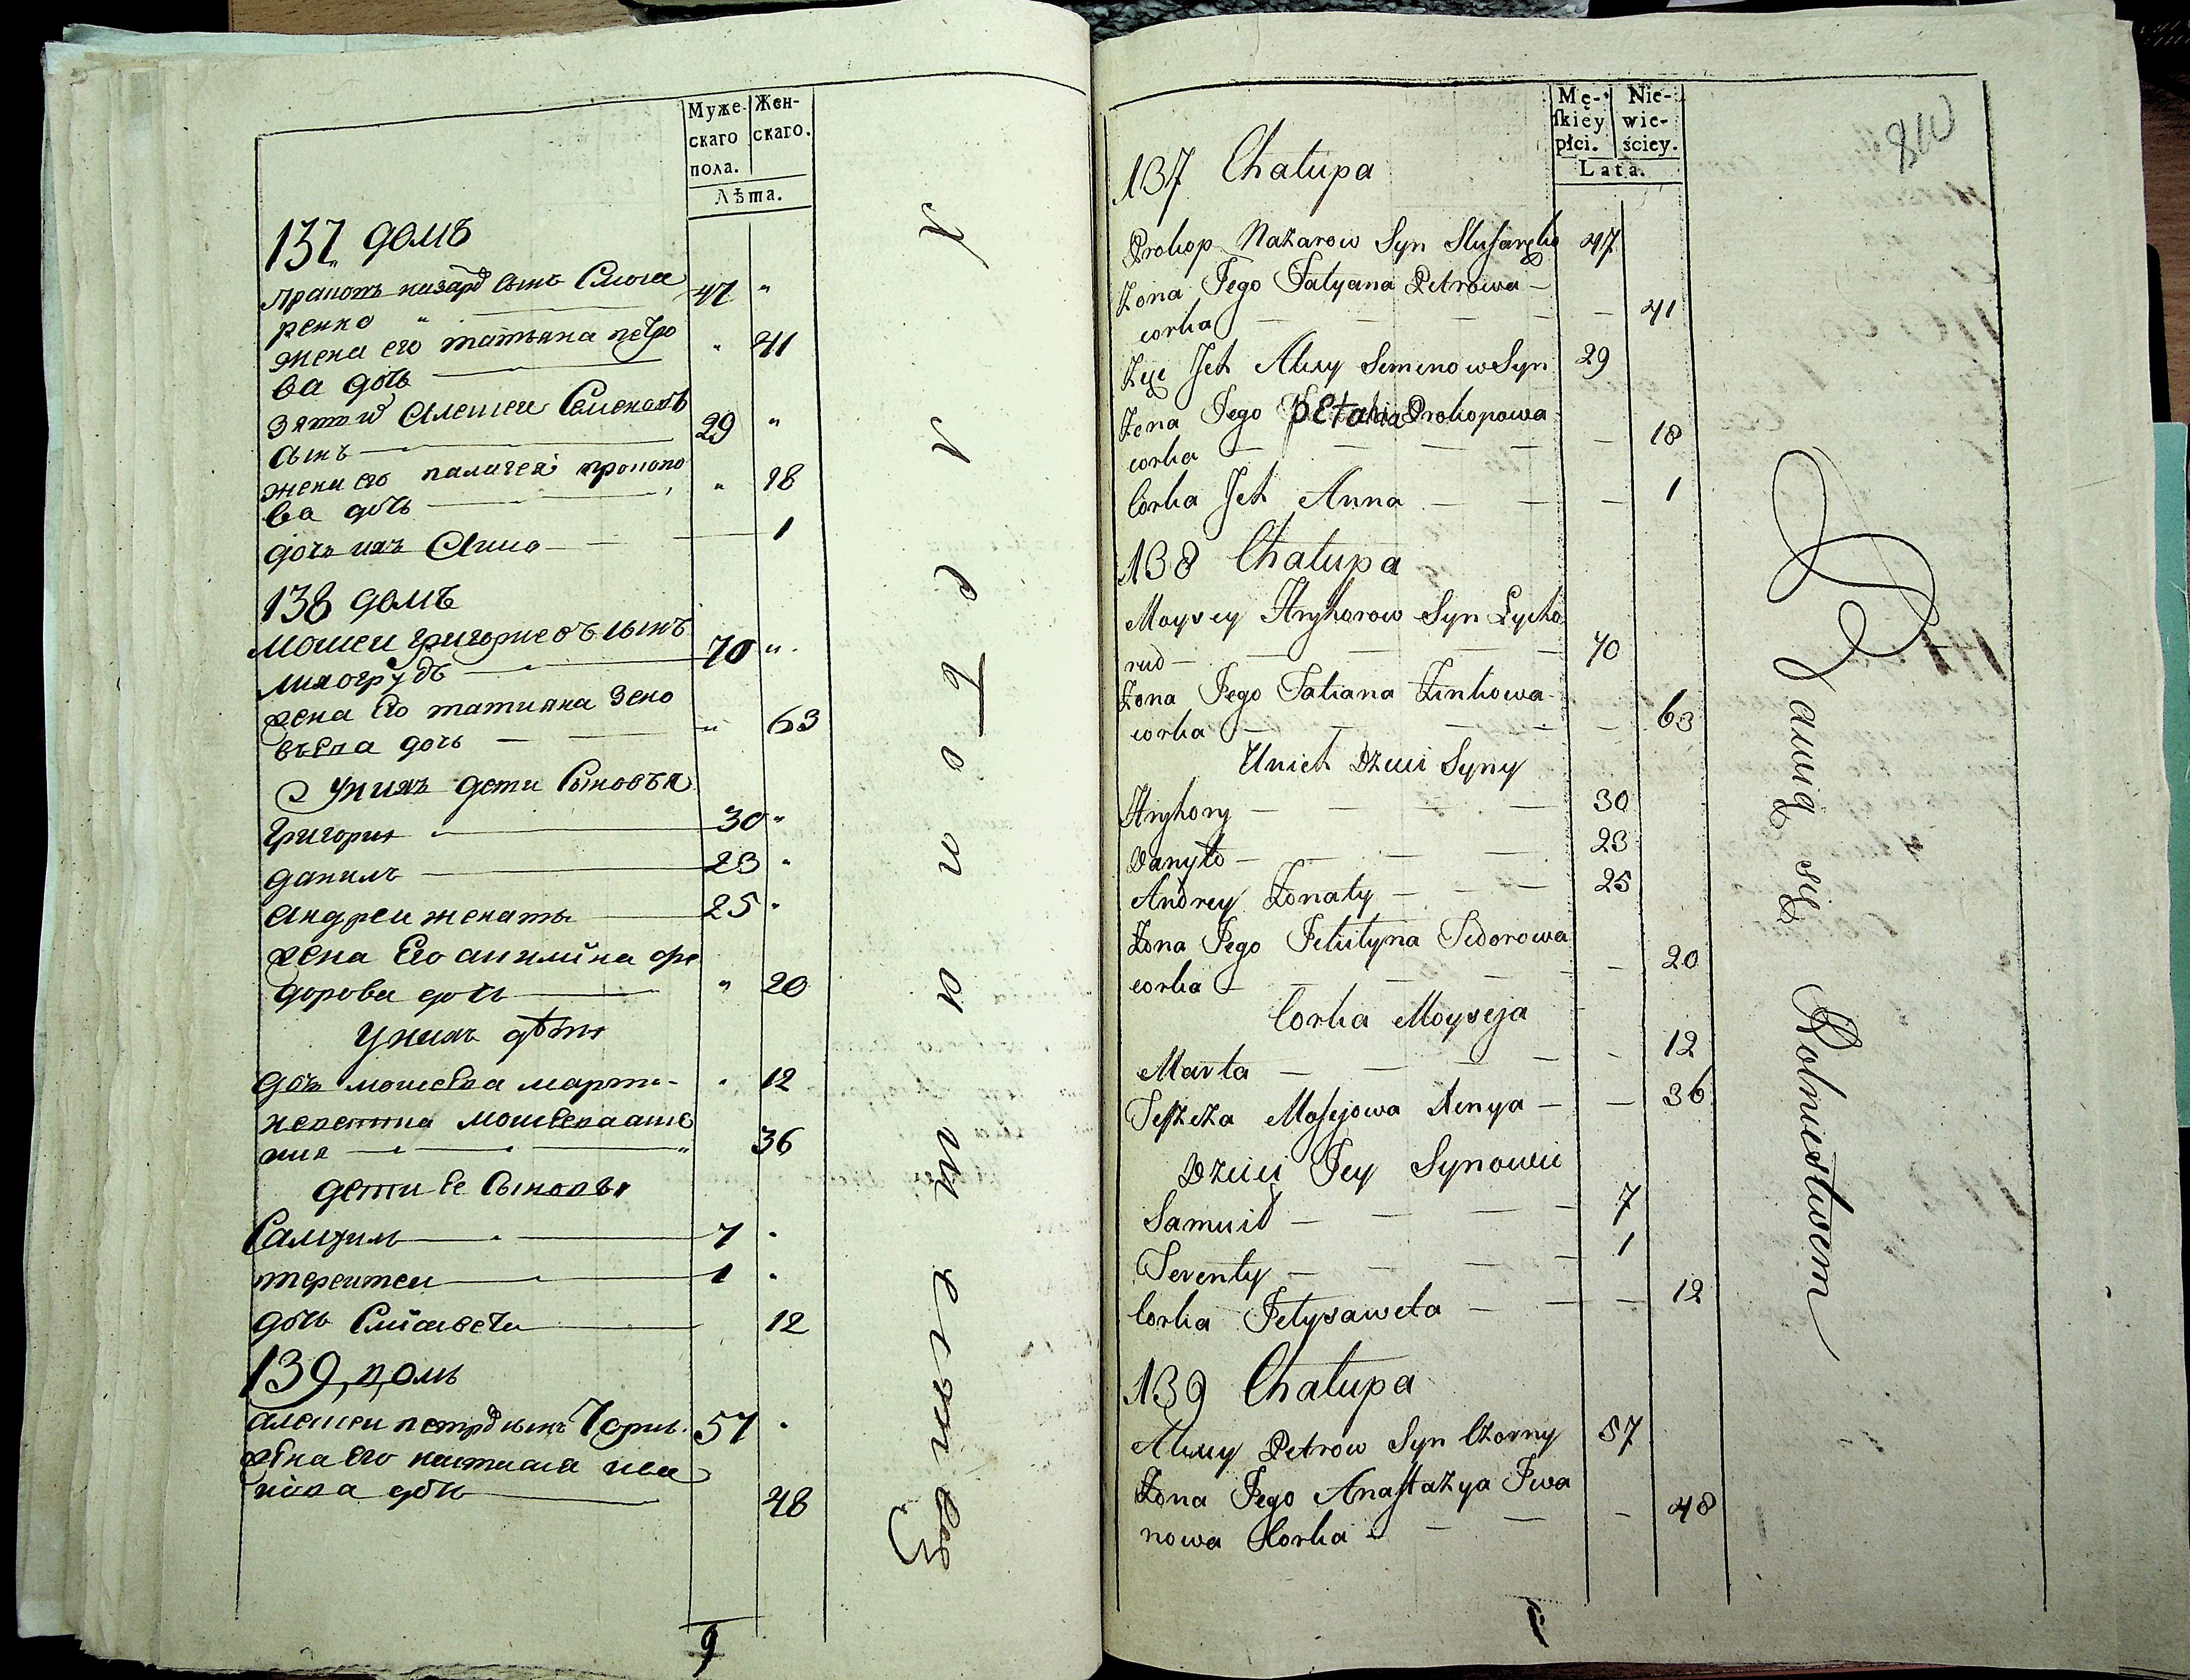 Муже-
скаго
пола.
Жен-
скаго.
Лѣта.
137 домъ
Жена его татьяна петро
ва дочь
47
41
Зятъ Алеѯеи Семеновъ
сынъ
29
жена его палагея прокопо
ва дочь
18
дочь ихъ Анна
1
138 домъ
Моисеи григориевъ сынъ
лихогрудъ
70
жена Его татияна Зено
вьева дочь
63
У нихъ дети Сыновья
григория
30
данилъ
23
андреи женаты
25
жена Его акилина фе
дорова дочь
20
У нихъ дѣти
дочь моисеева марта
12
36
дети Ее Сыновья
Самуилъ
7
терентеи
1
дочь Елисавета
12
139 домъ
алеѯеи петровъ сынъ Чорны
57
жена Его настасия ива
нова дочь
48
9
Mę-
ſkiey
płci.
Nie-
wie-
ściey.
Lata.
810
137 Chałupa
Prokop Nazarow Syn Slusarenko 47
Zona Jego Tatyana Petrowa
corka 41
Zięć Jch Alexy Semenow Syn 29
Zona Jego Pelahia Prokopowa
corka 18
Corka Jch Anna 1
138 Chałupa
Moysey Hryhorow Syn Lycho
rud 70
Zona Jego Tatiana Zinkowa
corka 63
U nich Dzieci Syny
Hryhory 30
Danyło 23
Andrey Zonaty 25
Zona Jego Jekilyna Fedorowa
corka 20
Corka Moyseja
Marta 12
36
Dzieci Jey Synowie
Samuił 7
Terenty 1
Corka Jelysaweta 12
139 Chałupa
Alexey Petrow Syn Czorny 57
Zona Jego Anastazya Iwa
nowa Corka 48
Bawią się Rolnictwem